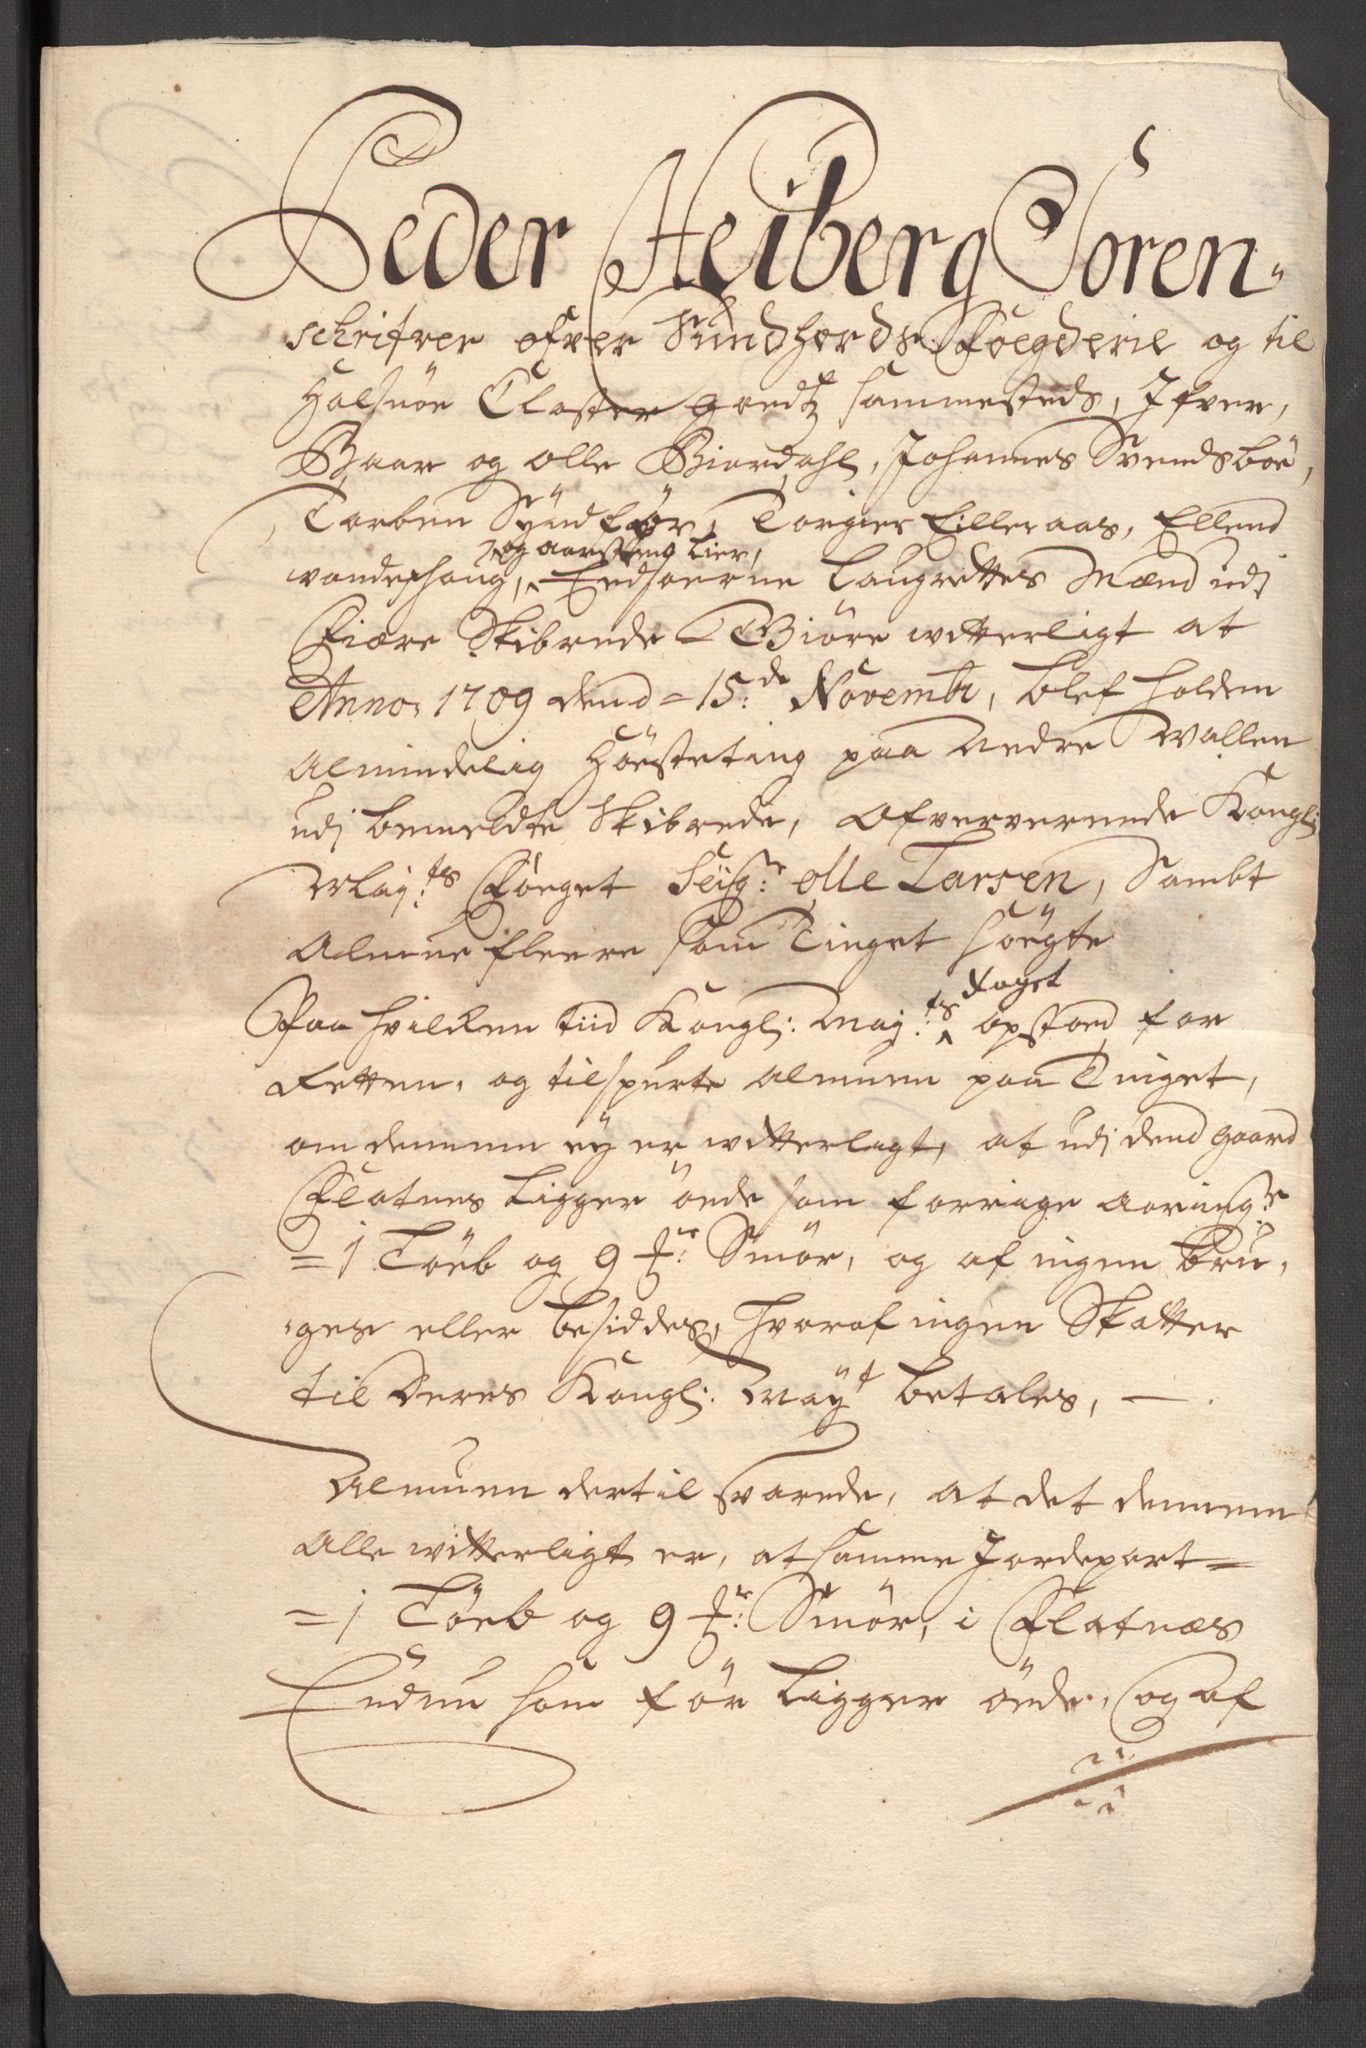 Peder Heiberg Soren-
schrifver ofver Sundhords Foegderie og til
Halsnöe Closter goedtz sammesteds, Ifver,
Baar og olle Biordahl, Johannes Svendsböe,
Torben Sÿndför, Torgier Eilleraas, Ellend
og aarsteng Lier,
wandeshaug, Eedsoerne Laugrettes Mænd udj
Fiære Skibrede Giöre witterligt at
Anno 1709 dend = 15:de Novembr, blef holden
almindelig Höesteting paa Nedre Wallen
udj bemeldte Skibrede, ofververende Kongl:
May:ts Föeget Seig:r olle Larsen, Sambt
Almue fleere som Tinget Söegte
Paa hvilken tiid Kongl: May:ts foget opstoed for
Retten, og tilspurte almuen paa Tinget,
om dennem eÿ er witterlagt, at udj dend gaard
Flatnes Ligger öede som forrige aaringer
= 1 Löeb og 9 [?]:r Smör, og af ingen bru,
ges eller besiddes, hvoraf ingen Skatter
til Deres Kongl: Maÿt betales, —
Almuen dertil svarede, at det dennem
alle witterligt er, at samme Jordepart =
= 1 Löeb og 9 [?]:r Smör, i Flatnæs
Endnu som för Ligger öede, og af